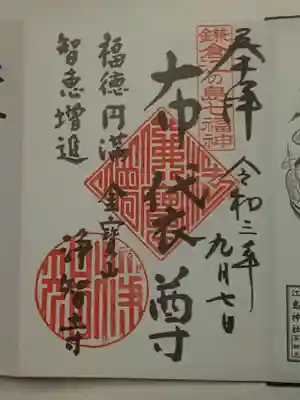 奉拝
鎌倉江の島七福神
令和三年九月七日
布袋尊
福徳円満
智恵増進
金宝山
浄智寺
江島神社